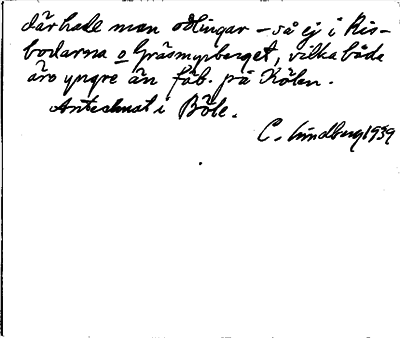 där hade man odlingar – så ej i Ris-
bodarna o Gräsmyrberget, vilka båda
äro yngre än fäb. på Kölen.
Antecknat i Böle.
C. Lundberg 1939